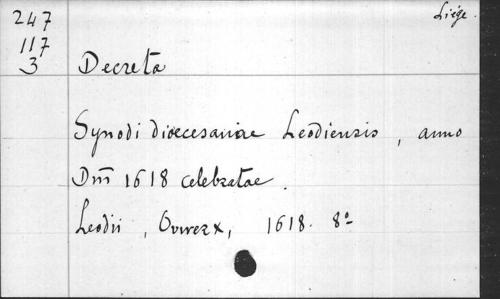 247
Liége.
117
3
Decreta
Synodi dioecesanae Leodiensis, anno
Dm̄ 1618 celebratae.
Leodii, Ouwerx, 1618. 8º